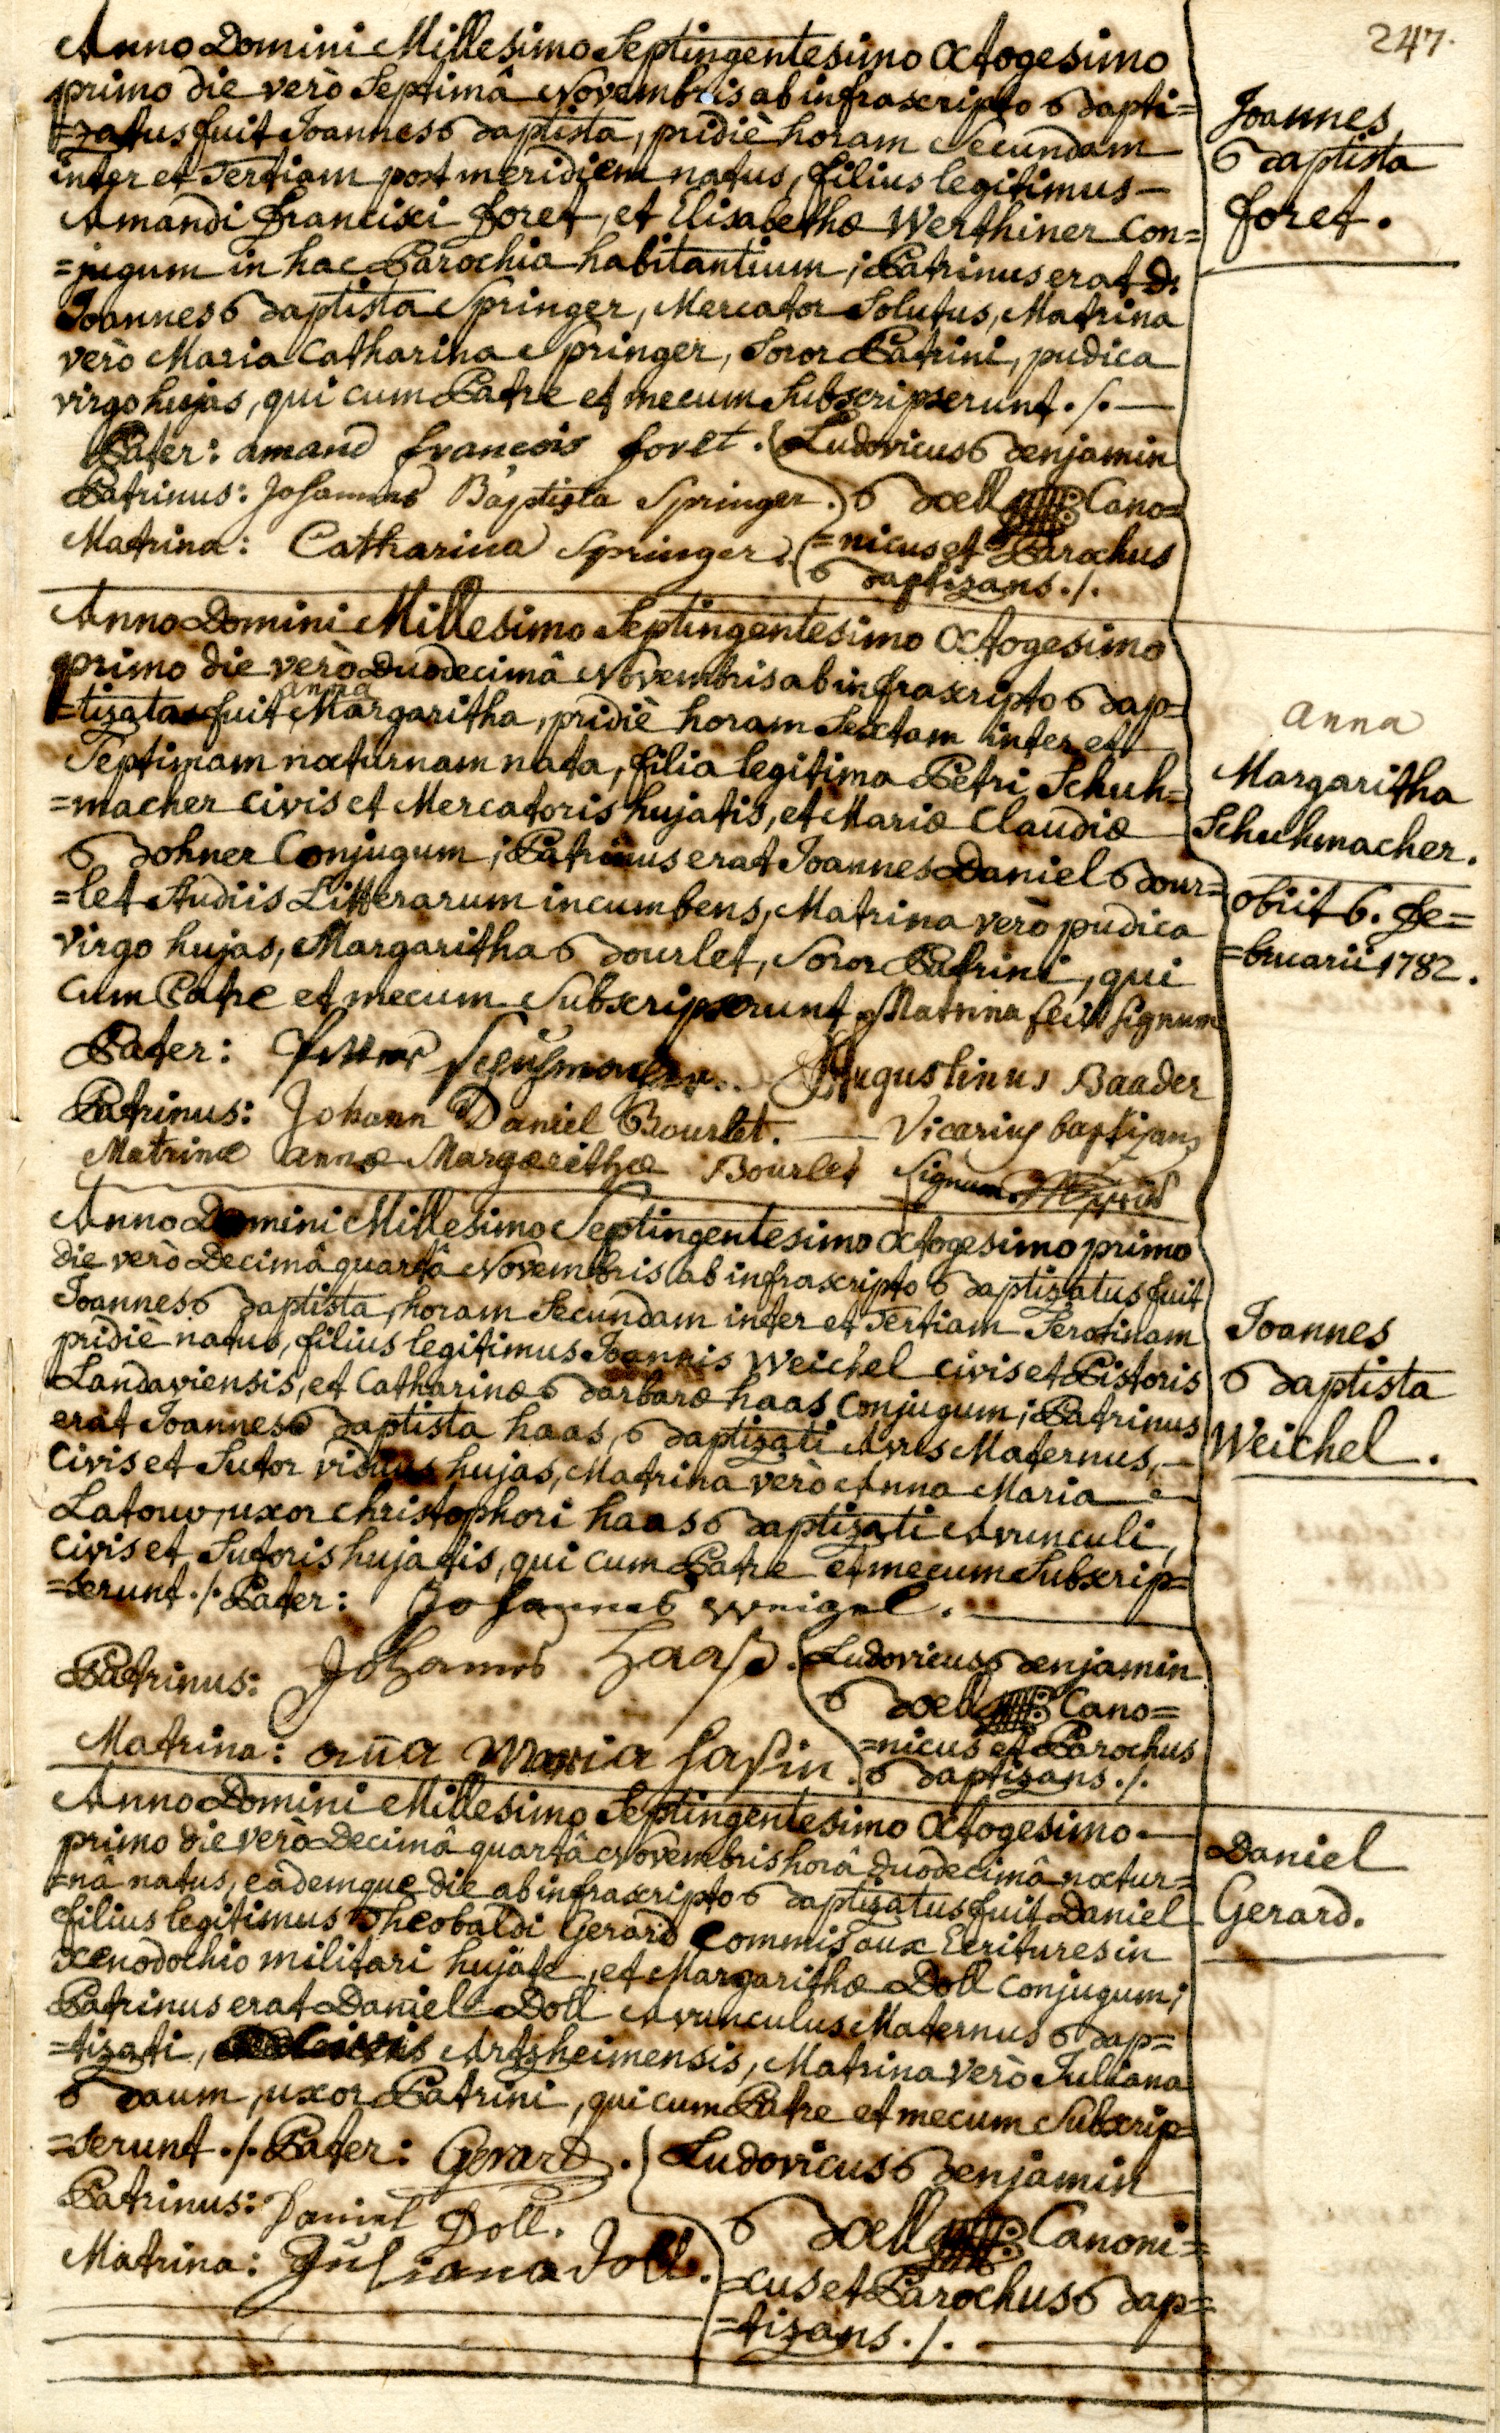 247.
Anno Domini Millesimo Septingentesimo Octogesimo
primo die verò Septimâ Novembris ab infrascripto Bapti=
=zatus fuit Joannes Baptista, pridiè horam Secundam
inter et Tertiam post meridiem natus, filius legitimus —
Amandi Francisci foret, et Elisabethæ Werthiner Con=
=jugum in hac Parochia habitantium; Patrinus erat D:
Joannes Baptista Springer, Mercator Solutus, Matrina
verò Maria Catharina Springer, Soror Patrini, pudica
virgo hujas, qui cum Patre et mecum Subscripserunt ./. —
Pater: amand francois foret.
Patrinus: Johannes Baptista Springer.
Matrina: Catharina Springer.
Ludovicus Benjamin
Boell Cano=
=nicus et Parochus
Baptizans ./.
Joannes
Baptista
foret.
Anno Domini Millesimo Septingentesimo Octogesimo
primo die verò Duodecimâ Novembris ab infrascripto Bap=
=tizata fuit anna Margaritha, pridiè horam Sextam inter et
Septimam nocturnam nata, filia legitima Petri Schuh=
=macher civis et Mercatoris hujatis, et Mariæ Claudiæ
Bohner Conjugum; Patrinus erat Joannes Daniel Bour=
=let Studiis Litterarum incumbens, Matrina verò pudica
virgo hujas, Margaritha Bourlet, Soror Patrini, qui
cum Patre et mecum Subscripserunt Matrina fecit signum
Pater: Schuhmacher.
Augustinus Baader
Patrinus: Johann Daniel Bourlet. — Vicarius baptizans
Matrinæ annæ Margarethæ Bourlet Signum
anna
Margaritha
Schuhmacher.
obiit 6. fe=
=bruarii 1782.
Anno Domini Millesimo Septingentesimo Octogesimo primo
die verò Decimâ quartâ Novembris ab infrascripto Baptizatus fuit
Joannes Baptista, horam Secundam inter et Tertiam Serotinam
pridiè natus, filius legitimus Joannis Weichel civis et Pistoris
Landaviensis, et Catharinæ Barbaræ haas Conjugum; Patrinus
erat Joannes Baptista haas, Baptizati Avus Maternus, —
Civis et Sutor viduus hujas, Matrina verò Anna Maria
Latour, uxor Christophori haas Baptizati Avunculi,
civis et Sutoris hujatis, qui cum Patre et mecum Subscrip=
=serunt ./. Pater: Johannes Weigel.
Patrinus: Johannes Haaß.
Matrina: aña Maria hasin.
Ludovicus Benjamin
Boell Cano=
=nicus et Parochus
Baptizans ./.
Joannes
Baptista
Weichel.
Anno Domini Millesimo Septingentesimo Octogesimo —
primo die verò Decimâ quartâ Novembris horâ duodecimâ noctur=
=nâ natus, eâdemque die ab infrascripto Baptizatus fuit Daniel
filius legitimus Theobaldi Gerard Commis aux Ecritures in
xenodochio militari hujate, et Margarithæ Doll Conjugum;
Patrinus erat Daniel Doll Avunculus Maternus Bap=
=tizati, Civis Artzheimensis, Matrina verò Juliana
Baum, uxor Patrini, qui cum Patre et mecum Subscrip=
=serunt ./. Pater: Gerard.
Patrinus: Daniel Doll.
Matrina: Juliana Doll.
Ludovicus Benjamin
Boell Canoni=
=cus et Parochus Bap=
=tizans ./.
Daniel
Gerard.